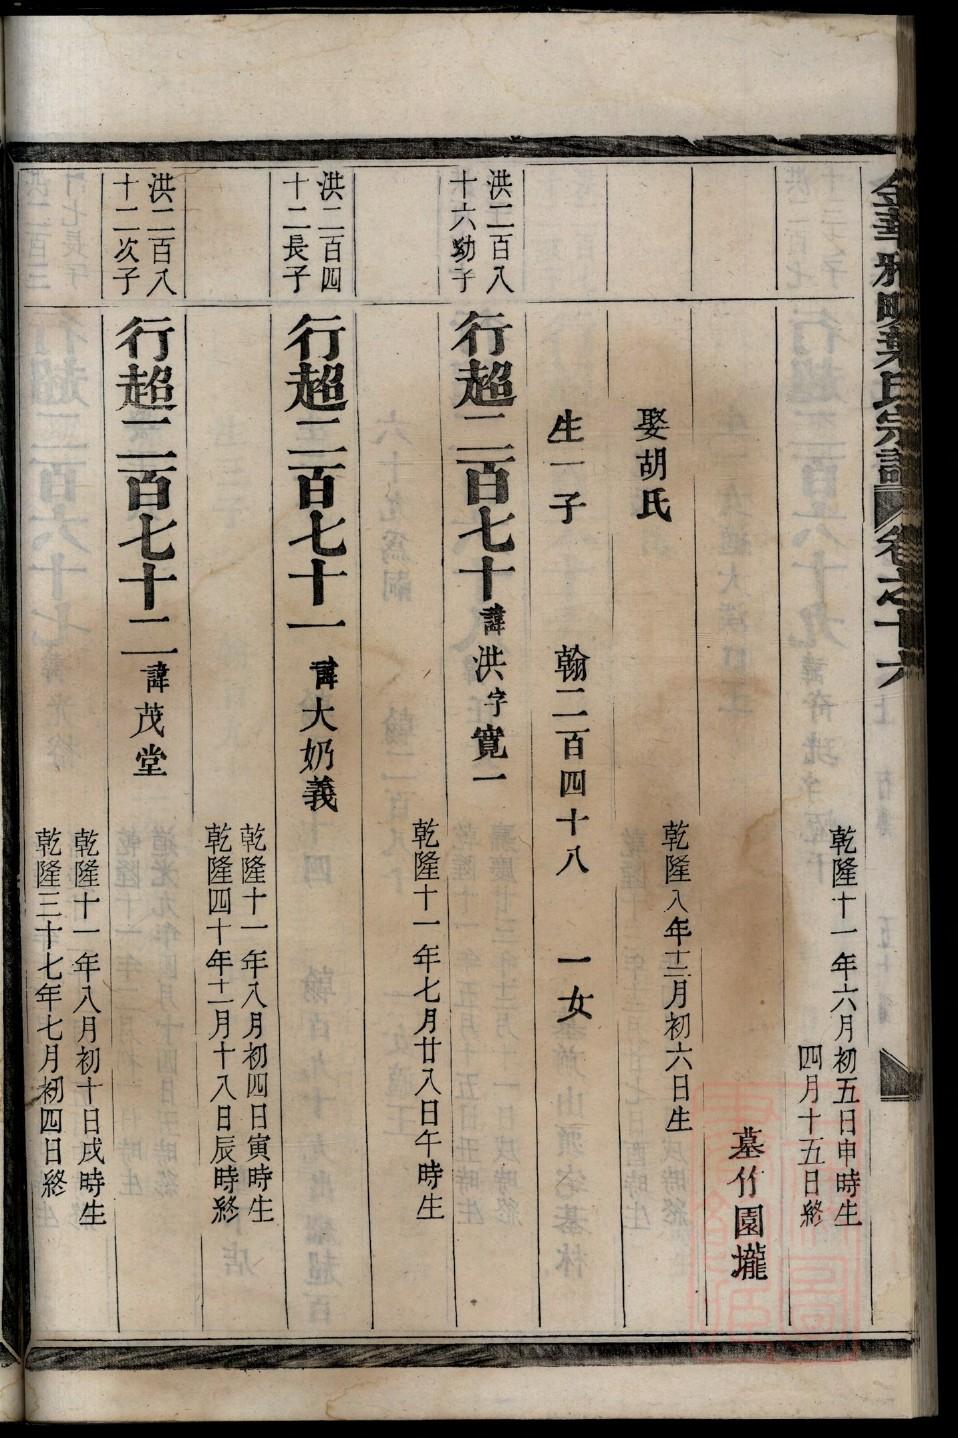 金華雅畈葉氏宗譜
卷之十六
乾隆十一年六月初五日申時生
四月十五日終
墓竹園壠
乾隆八年十二月初六日生
娶胡氏
生一子 翰二百四十八 一女
洪二百八
十六幼子
行超二百七十諱洪字寬一
乾隆十一年七月廿八日午時生
洪二百四
十二長子
行超二百七十一諱大奶義
乾隆十一年八月初四日寅時生
乾隆四十年十二月十八日辰時終
洪二百八
十二次子
行超二百七十二諱茂堂
乾隆十一年八月初十日戌時生
乾隆三十七年七月初四日終